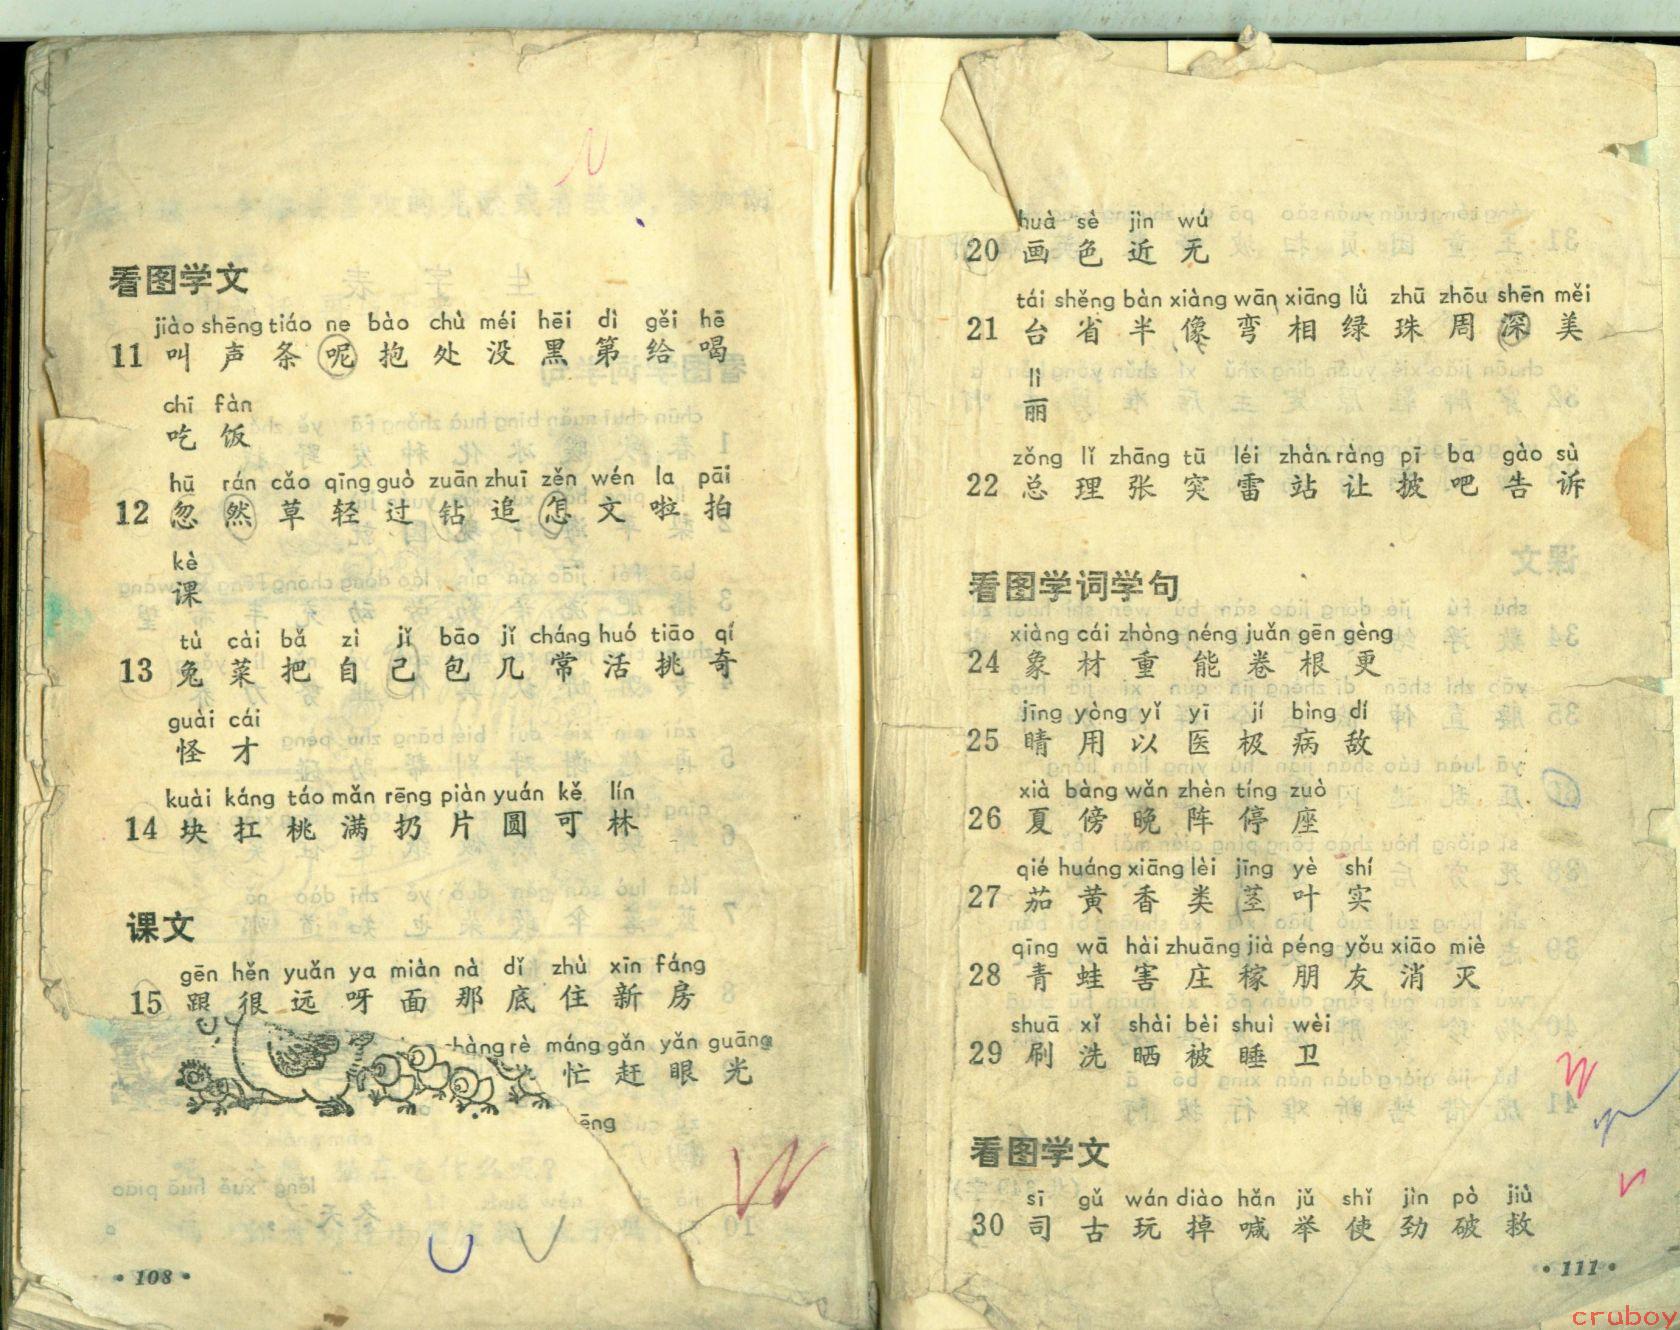 看图学文
jiào shēng tiáo ne bào chù méi hēi dì gěi hē
11 叫 声 条 呢 抱 处 没 黑 第 给 喝
chī fàn
吃 饭
hū rán cǎo qīng guò zuān zhuī zěn wén la pāi
12 忽 然 草 轻 过 钻 追 怎 文 啦 拍
kè
课
tù cài bǎ zì jǐ bāo jǐ cháng huó tiāo qí
13 兔 菜 把 自 己 包 几 常 活 挑 奇
guài cái
怪 才
kuài káng táo mǎn rēng piàn yuán kě lín
14 块 扛 桃 满 扔 片 圆 可 林
课文
gēn hěn yuǎn ya miàn nà dǐ zhù xīn fáng
15 跟 很 远 呀 面 那 底 住 新 房
rè máng gǎn yǎn guāng
忙 赶 眼 光
ēng
• 108 •
huà sè jìn wú
20 画 色 近 无
tái shěng bàn xiàng wān xiāng lǜ zhū zhōu shēn měi
21 台 省 半 像 弯 相 绿 珠 周 深 美
lì
丽
zǒng lǐ zhāng tū léi zhàn ràng pī ba gào sù
22 总 理 张 突 雷 站 让 披 吧 告 诉
看图学词学句
xiàng cái zhòng néng juǎn gēn gèng
24 象 材 重 能 卷 根 更
jīng yòng yǐ yī jí bìng dí
25 睛 用 以 医 极 病 敌
xià bàng wǎn zhèn tíng zuò
26 夏 傍 晚 阵 停 座
qié huáng xiāng lèi jīng yè shí
27 茄 黄 香 类 茎 叶 实
qīng wā hài zhuāng jià péng yǒu xiāo miè
28 青 蛙 害 庄 稼 朋 友 消 灭
shuā xǐ shài bèi shuì wèi
29 刷 洗 晒 被 睡 卫
看图学文
sī gǔ wán diào hǎn jǔ shǐ jìn pò jiù
30 司 古 玩 掉 喊 举 使 劲 破 救
• 111 •
cruboy